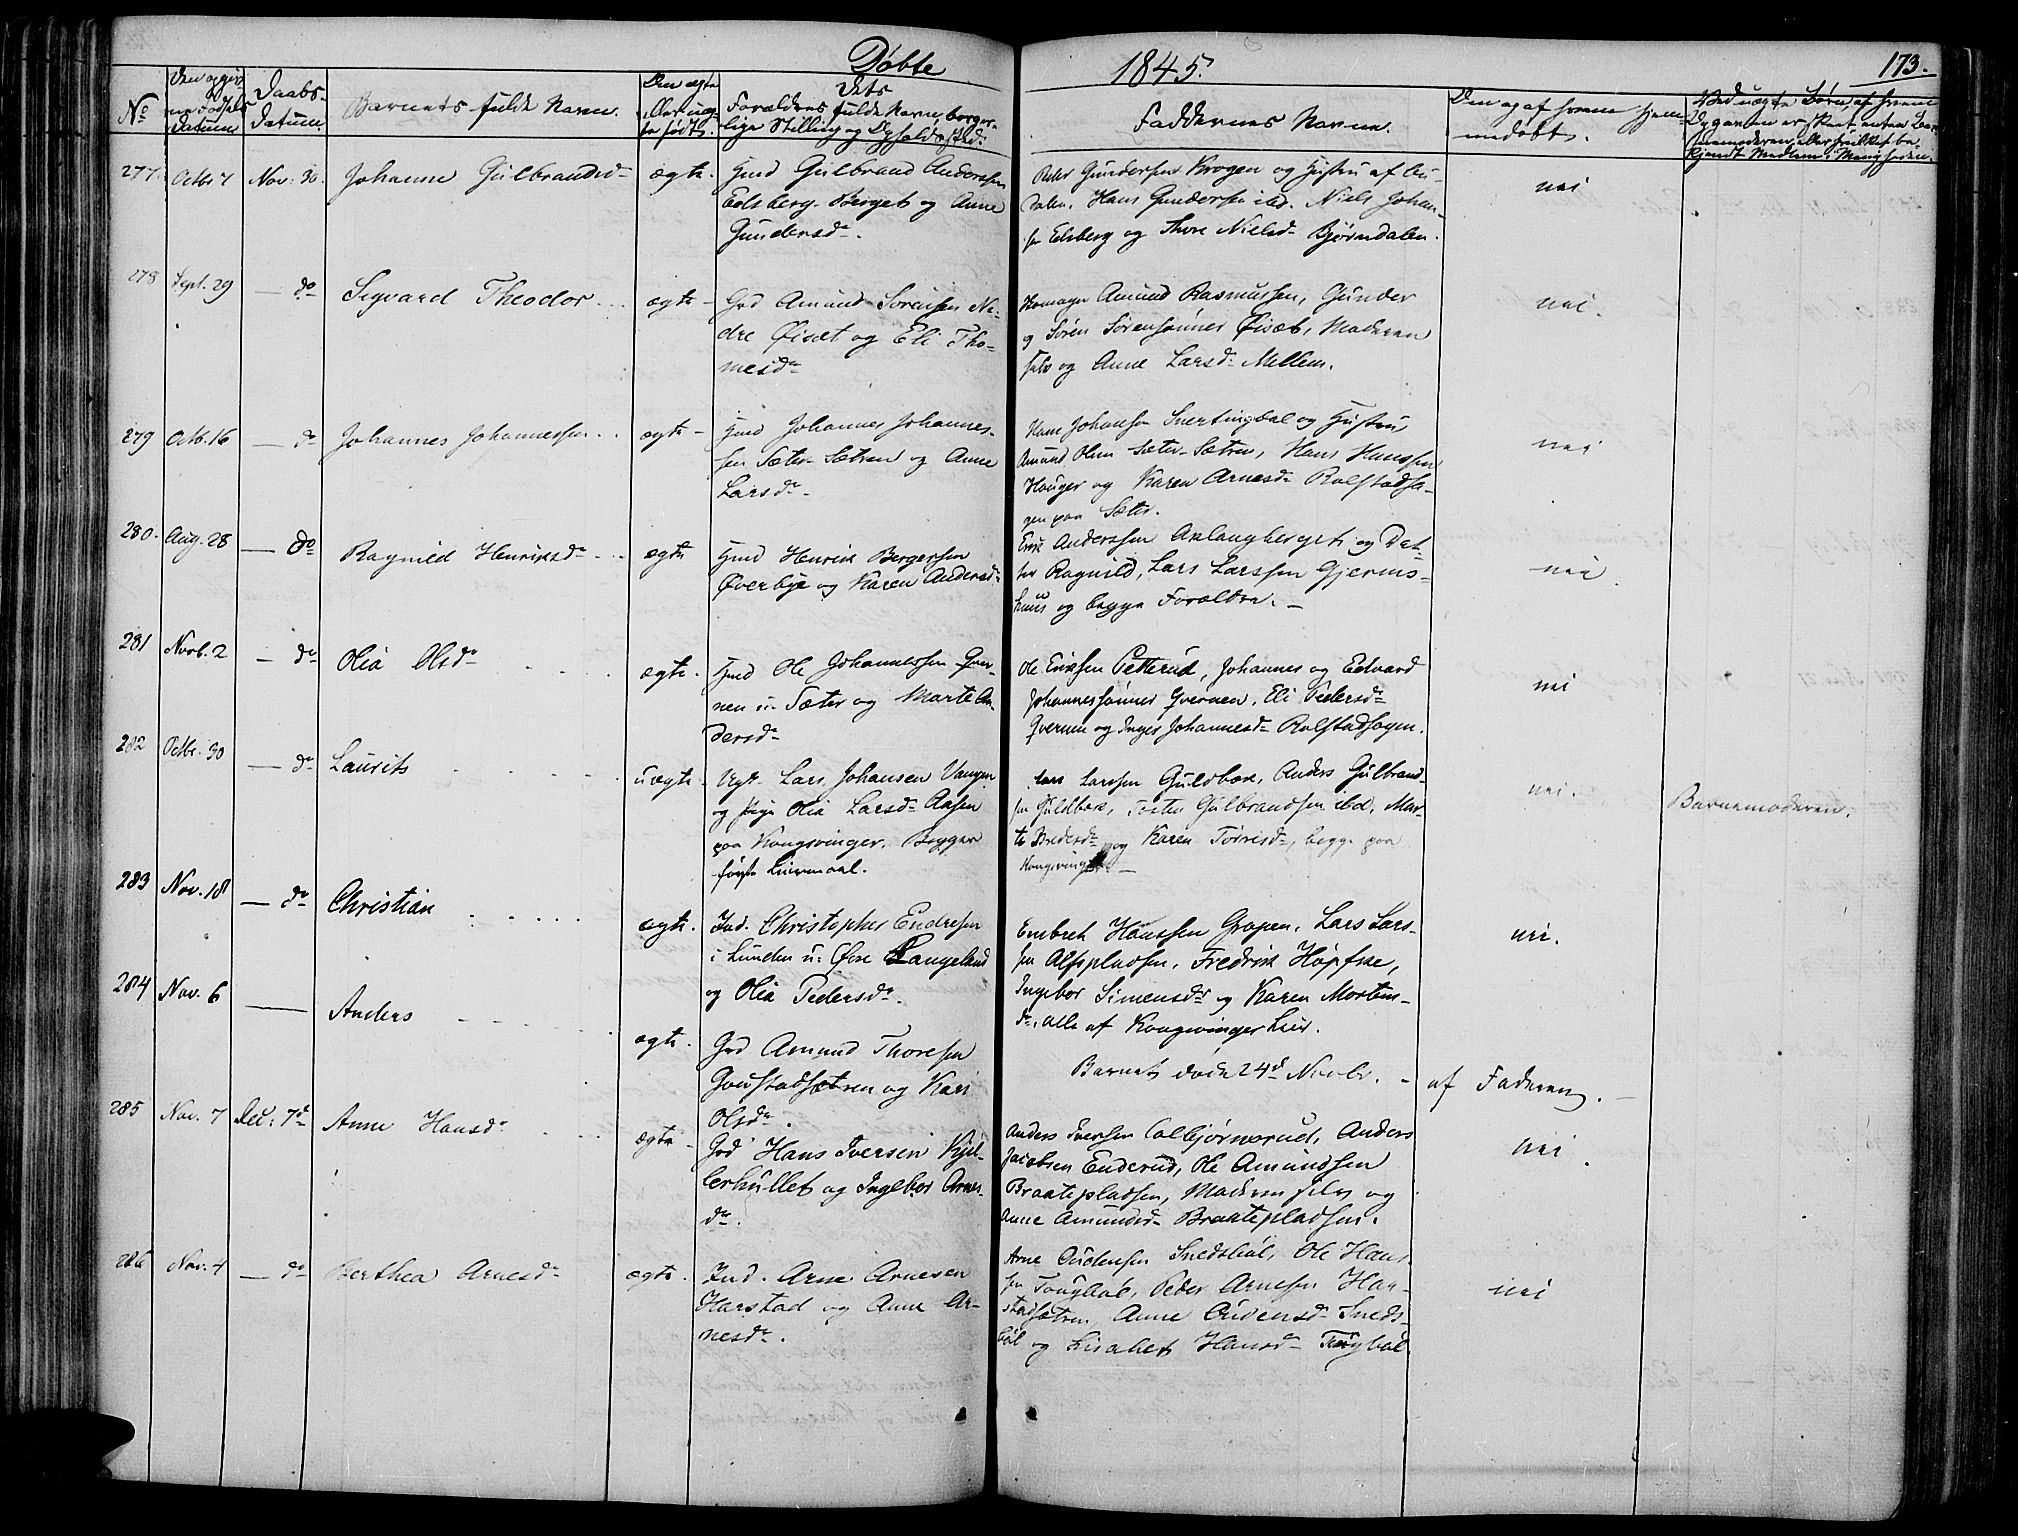 Døbte 1845. 173.
No Datum Daabs-Datum Barnets fulde Navn. Forældres fulde Navn, borgerlige Stilling og Opholdssted. Faddernes Navne.
277. Octbr 7 Nov: 30. Johanne Gulbrandsd. ægte. Hmd Gulbrand Anderssen
Berget og Anne
Gundersd.
Peder Gundersen Krogen og Hustru af
Hans Gundersen ibd. Niels Johan-
sen Edsberg og Thore Nielsd. Bjørndalen.
nei
278 Sept. 29 — do Sigvard Theodor ægte - Grd Amund Sørensen Ne-
dre Øisæt og Eli Tho-
mesd.
Amund Rasmussen, Gunder
og Søren Sørensønner Øisæt, Moderen
selv og Anne Larsd. Mellem.
nei.
279 Octb. 16 — do Johannes Johannessen ægte - Hmd Johannes Johannes-
sen Sæter-Sætren og Anne
Larsd.
Hans Johansen Snertingdal og Hustru,
Amund Olsen Sæter-Sætren, Hans Hanssen
Hauger og Karen Arnesd. Rolstadsa-
gen paa Sæter.
nei
280. Aug. 28 — do Ragnild Henriksd. ægte Hmd Henrik Bergersen
Øverbye og Karen Andersd.
Erik Anderssen Aslangberget og Dat-
ter Ragnild, Lars Larssen Gjerms-
huus og begge Forældre. —
nei
281 Novb. 2 — do Olia Olsd. ægte. Hmd Ole Johannessen Qver-
nen u. Sæter og Marte An-
dersd.
Ole Eriksen Petterud, Johannes og Edvard
Johannessønner Qvernen, Eli Pedersd.
Qvernen og Inger Johannesd. Rolstadsagen.
nei
282 Octbr. 30 — do Laurits uægte. Lars Johansen Vangen
og Pige Olia Larsd. Aasen
paa Kongsvinger. Begges
første Leiermaal.
Lars Larssen Guldbak, Anders Gulbrand-
sen Guldbak, Gulbrandsen ibd. Mar-
te og Karen Torresd., begge paa
Kongsvinger. —
nei. Barnemoderen.
283 Nov. 18 — do Christian ægte. Ind. Christopher Endresen
i Lunden u. Øvre Langeland
og Olia Pedersd.
Embret Hanssen Gropen, Lars Lars-
sen Alfspladsen, Fredrik Høpfne,
Ingebor Simensd. og Karen Mortens-
d., alle af Kongsvinger Leir.
nei.
284 Nov. 6 — Anders ægte. Grd Amund Thoresen
Goustadsætren og Kari
Olsd.
Barnet døde 24d Novbr. - af Faderen. —
285 Nov. 7 Dec: 7d Anne Hansd. ægte - Grd Hans Iversen Kjel-
lerhullet og Ingebor Arnes-
d.
Anders Iversen Colbjørnsrud, Anders
Jacobsen Enderud, Ole Amundsen
Braatepladsen, Moderen selv og
Anne Amundsd. Braatepladsen.
nei
286 Nov. 4 — do Berthea Arnesd. ægte. Ind. Arne Arnesen
Harstad og Anne Ar-
nesd.
Arne Oudensen Snedsbøl, Ole Hans-
sen Tougbøl, Peder Arnesen Har-
stadsætren, Anne Oudensd. Sneds-
bøl og Lisabet Hansd. Tougbøl.
nei